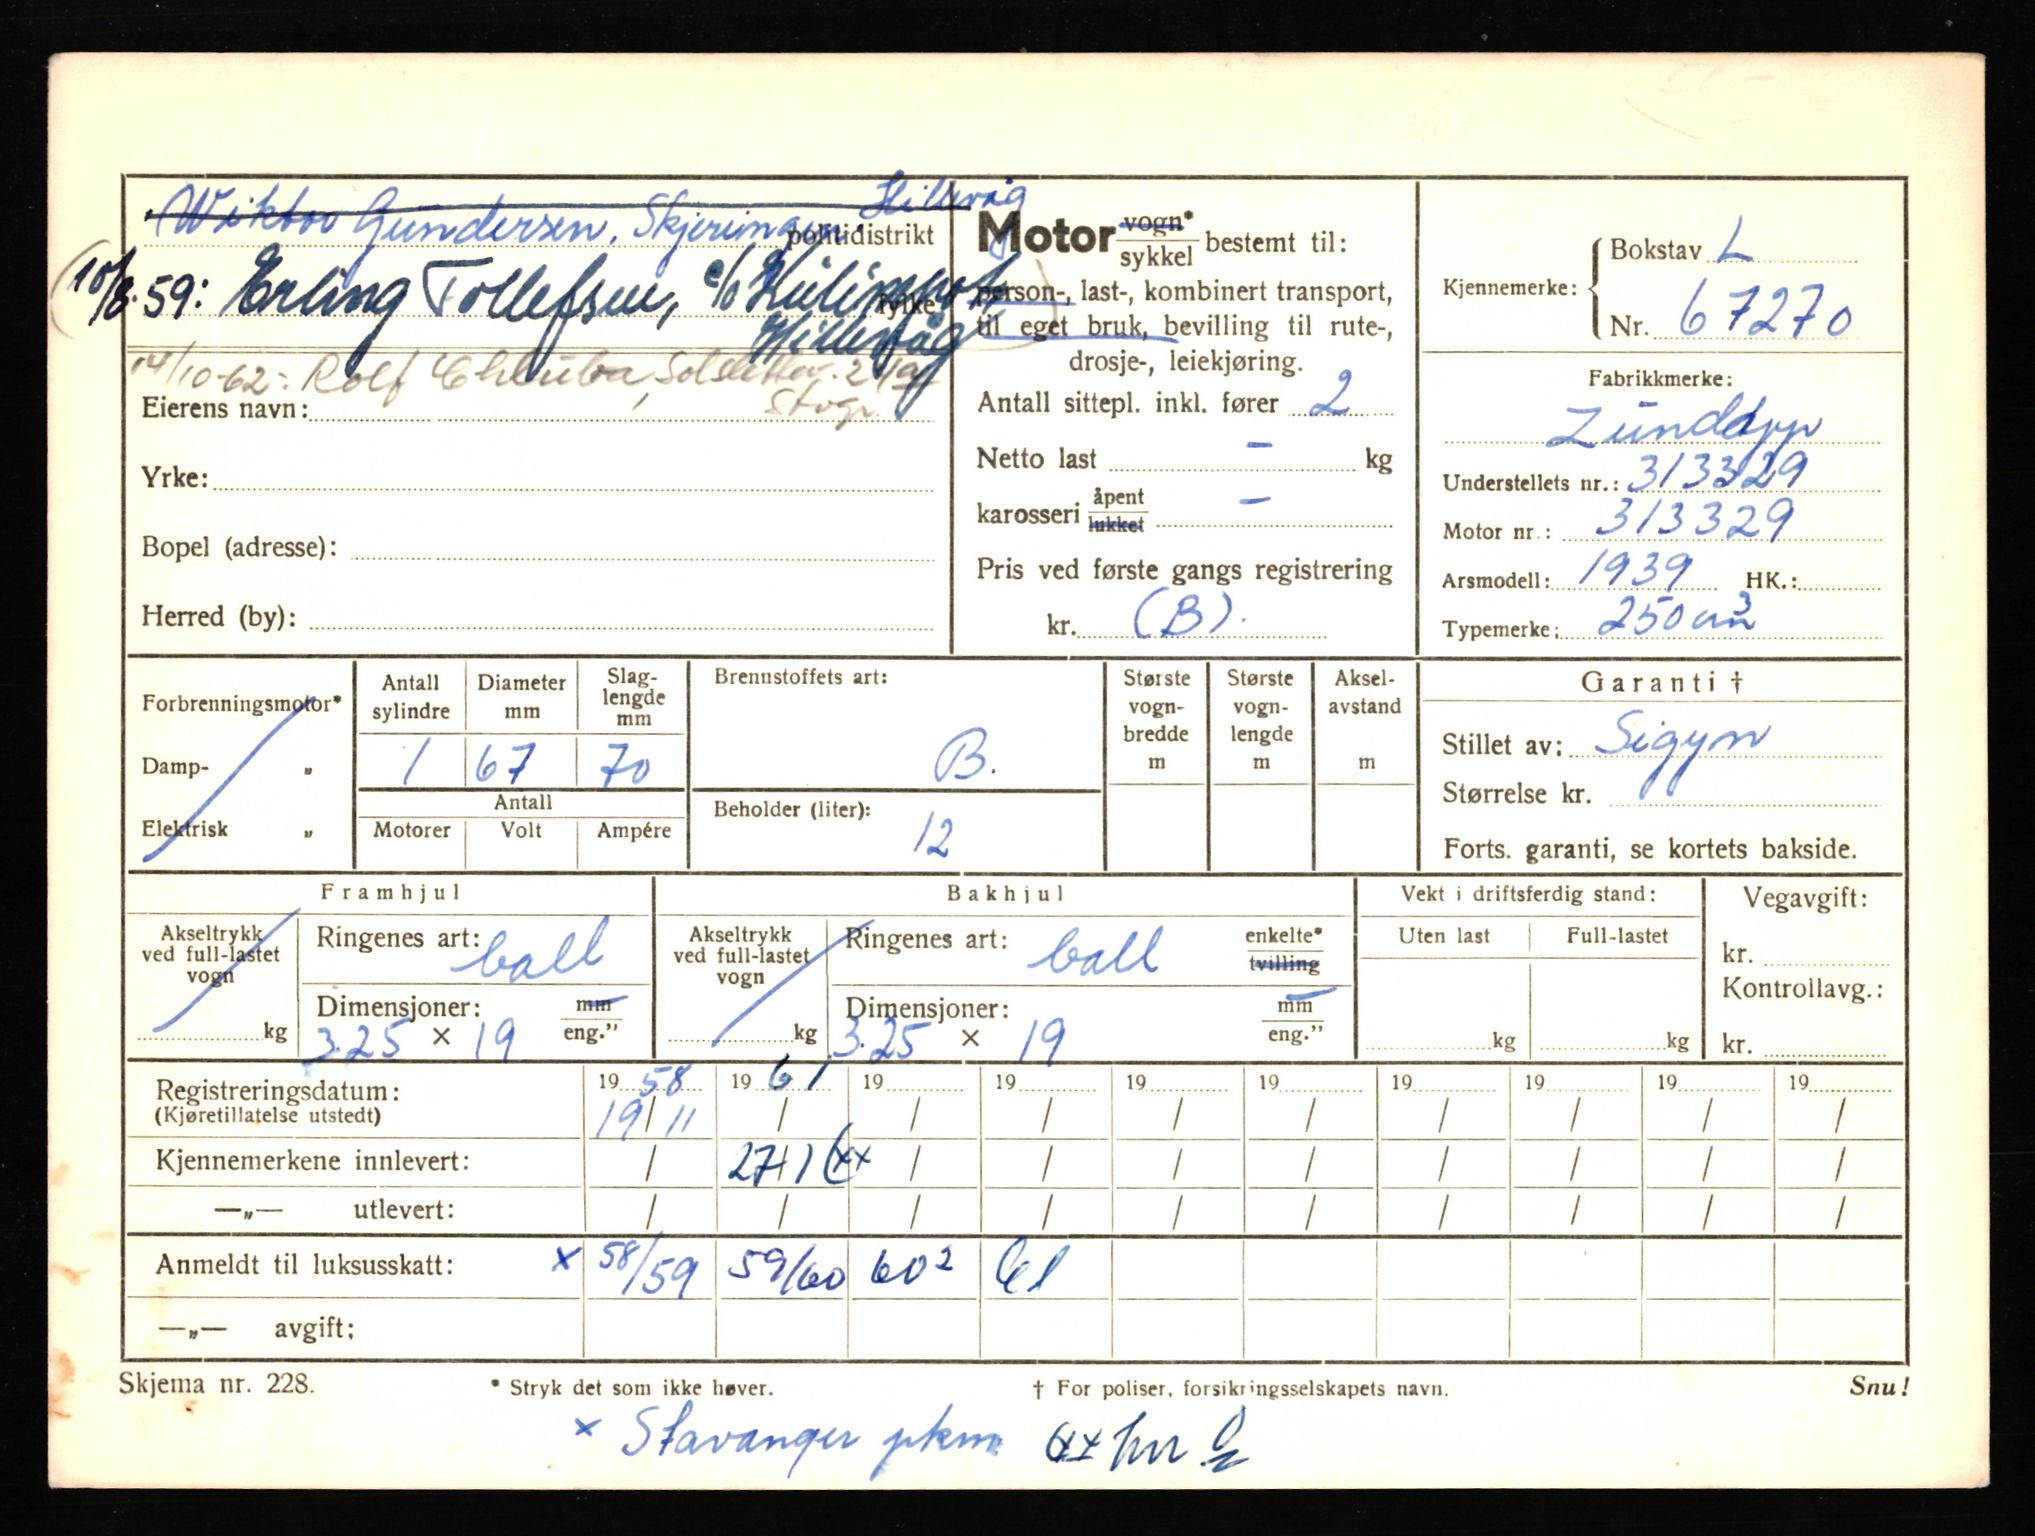 Wiktor Gundersen, Skjeringen. Hillevåg
politidistrikt
10/8.59: Erling Tollefsen, c/o
fylke
Hillevåg
14/10-62: Rolf
Stvgr.
Eierens navn:
Yrke:
Bopel (adresse):
Herred (by):
Motor vogn* sykkel bestemt til:
person-, last-, kombinert transport,
til eget bruk, bevilling til rute-,
drosje-, leiekjøring.
Antall sittepl. inkl. fører 2
Netto last – kg
karosseri åpent lukket –
Pris ved første gangs registrering
kr. (B).
Kjennemerke: Bokstav L
Nr. 67270
Fabrikkmerke:
Zünddapp
Understellets nr.: 313329
Motor nr.: 313329
Arsmodell: 1939 HK.:
Typemerke: 250 cm3
Forbrenningsmotor*
Damp- „
Elektrisk „
Antall sylindre 1
Diameter mm 67
Slag-lengde mm 70
Antall
Motorer Volt Ampére
Brennstoffets art:
B.
Beholder (liter):
12
Største vogn-bredde m
Største vogn-lengde m
Aksel-avstand m
Garanti †
Stillet av: Sigyn
Størrelse kr.
Forts. garanti, se kortets bakside.
Framhjul
Akseltrykk ved full-lastet vogn kg
Ringenes art: ball
Dimensjoner: mm eng."
3.25 × 19
Bakhjul
Akseltrykk ved full-lastet vogn kg
Ringenes art: ball enkelte* tvilling
Dimensjoner: mm eng."
3.25 × 19
Vekt i driftsferdig stand:
Uten last Full-lastet
kg kg
Vegavgift:
kr.
Kontrollavg.:
kr.
Registreringsdatum: 19 58 19 61 19 19 19 19 19 19 19 19
(Kjøretillatelse utstedt) 19/11 / / / / / / / / /
Kjennemerkene innlevert: / 27/1 (xx / / / / / / / /
—„— utlevert: / / / / / / / / / /
Anmeldt til luksusskatt: x 58/59 59/60 60² 61
—„— avgift:
Skjema nr. 228. * Stryk det som ikke høver. † For poliser, forsikringsselskapets navn. Snu!
x Stavanger pkm xx